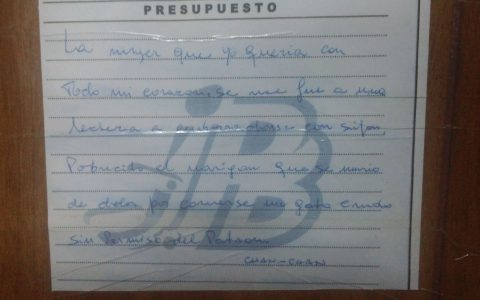 PRESUPUESTO
La mujer que yo queria con
Todo mi corazon, se me fue a una
lecheria a emborracharse con sifon,
Pobrecito el narigon que se murio
de dolor por comerse un gato crudo
sin Permiso del Patron
CHAN-CHAN
JB